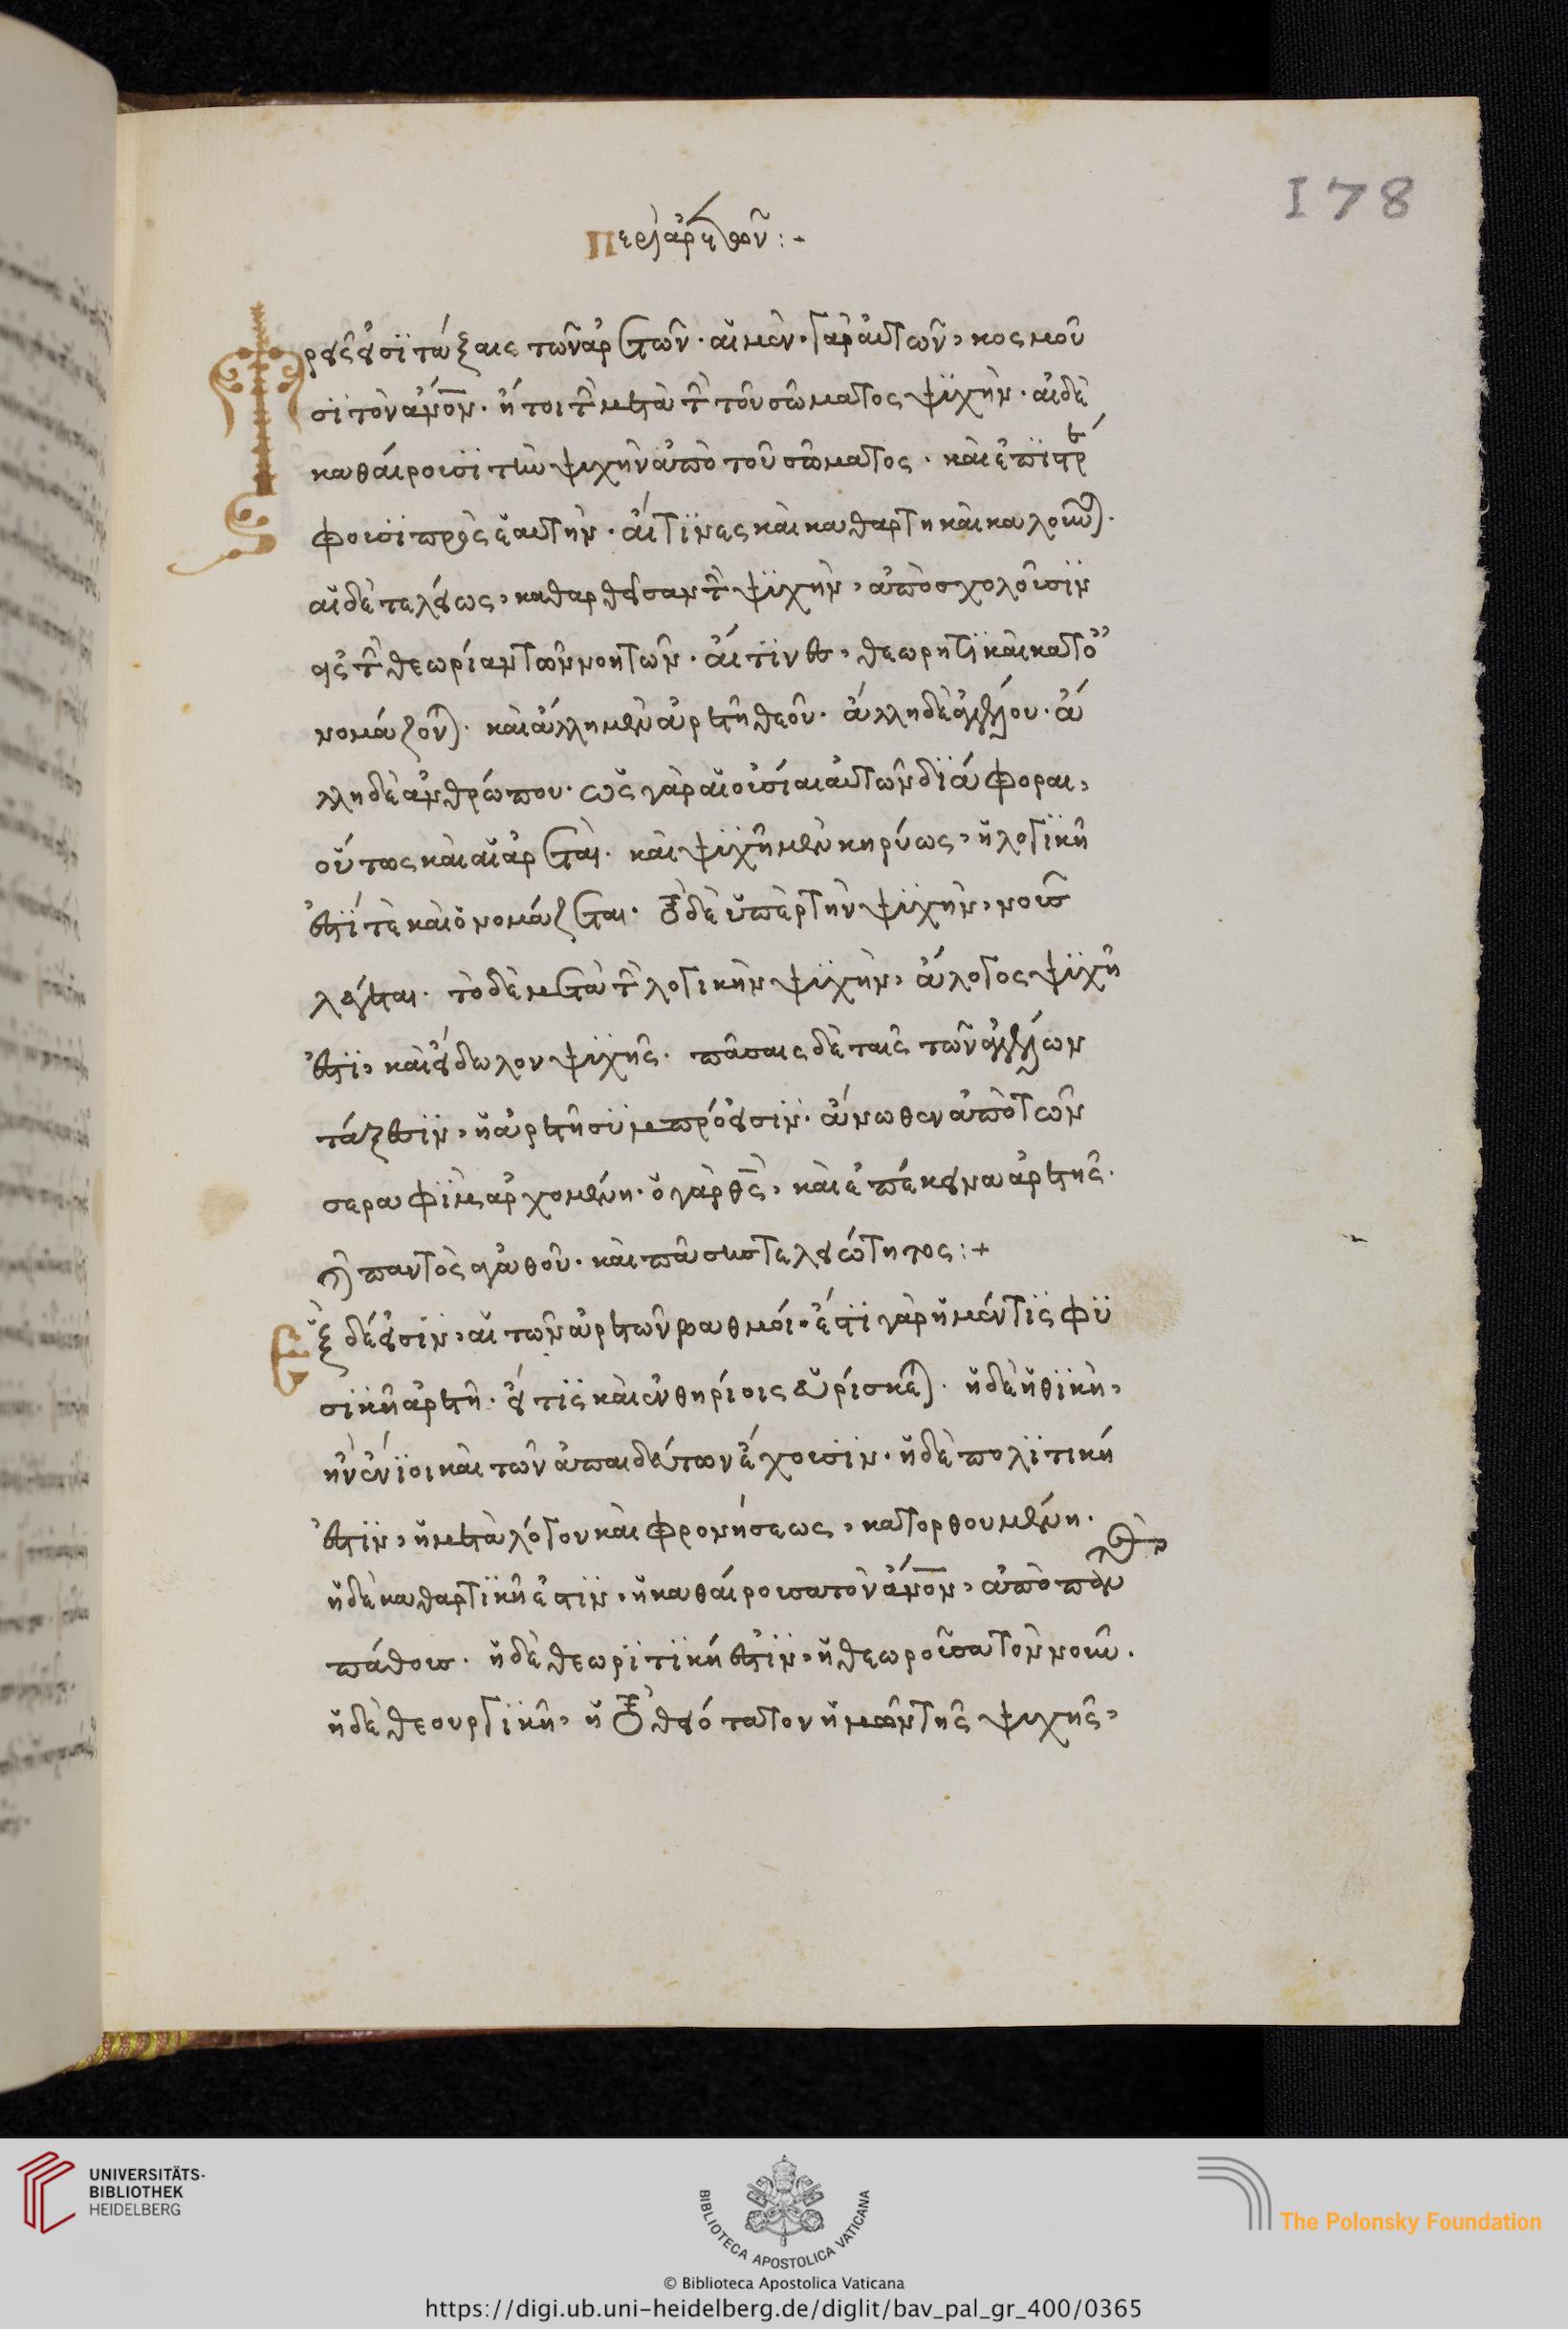 178
Περὶ ἀρετῶν :-
Τρεῖς εἰσϊ τάξαις τῶν ἀρετῶν· αἵ μὲν· γὰρ αὐτῶν, κοσμοῦ
σϊ τὸν ἄνον· ἤτοι τὴν μετὰ τὴν τοῦ σώματος ψϋχὴν· αἱ δὲ
καθαίρουσϊ τὴν ψυχὴν ἀπὸ τοῦ σώματος· καὶ ἐπϊστρέ
φουσϊ πρὸς ἑαυτὴν· αἵτϊνες καὶ καθαρτηκαὶ καλοῦνται·
αἵ δὲ τελείως, καθαρθεῖσαν τὴν ψϋχὴν, ἀποσχολοῦσϊν
εἰς τὴν θεωρίαν τῶν νοητῶν· αἵτϊνες, θεωρητϊκαὶ κατο
νομάζονται· καὶ ἄλλη μὲν ἀρετὴ θεοῦ· ἄλλη δὲ ἀγγέλου· ἄ
λλη δὲ ἀνθρώπου· ὡς γὰρ αἵ οὐσίαι αὐτῶν δϊάφοραι,
οὕτως καὶ αἵ ἀρεταὶ· καὶ ψϋχὴ μὲν κηρύως, ἡ λογϊκὴ
ἐστϊ τὲ καὶ ὀνομάζεται· τὸ δὲ ὑπὲρ τὴν ψϋχὴν, νοῦς
λέγεται· τὸ δὲ μετὰ τὴν λογικὴν ψϋχὴν, ἄλογος ψϋχὴ
ἐστϊ, καὶ εἴδωλον ψϋχῆς· πάσαις δὲ ταῖς τῶν ἀγγέλων
τάξεσϊν, ἡ ἀρετὴ σϋμπρόεισϊν· ἄνωθεν ἀπὸ τῶν
σεραφϊμ ἀρχομένη· ὁ γὰρ θς, καὶ ἐπέκεινα ἀρετῆς·
καὶ παντὸς ἀγαθοῦ· καὶ πάσης τελειότητος :+
Ἓξ δέ εἰσϊν, αἵ τῶν ἀρετῶν βαθμοί· ἔστϊ γὰρ ἡ μέν τϊς φϋ
σϊκὴ ἀρετὴ· εἴ τϊς καὶ ἐν θηρίοις εὑρίσκεται· ἡ δὲ ἠθϊκὴ,
ἣν ἔνϊοι καὶ τῶν ἀπαιδεύτων ἔχουσϊν· ἡ δὲ πολϊτική
ἐστϊν, ἡ μετὰ λόγου καὶ φρονήσεως, κατορθουμένη·
ἡ δὲ καθαρτϊκὴ ἐστϊν, ἡ καθαίρουσα τὸν ἄνον, ἀπὸ παντὸς
πάθους· ἡ δὲ θεωρϊτϊκή ἐστϊν, ἡ θεωροῦσα τὸν νοῦν·
ἡ δὲ θεουργϊκὴ, ἡ τὸ θειότατον ἡμῶν τῆς ψυχῆς,
UNIVERSITÄTS-
BIBLIOTHEK
HEIDELBERG
BIBLIOTECA APOSTOLICA VATICANA
The Polonsky Foundation
© Biblioteca Apostolica Vaticana
https://digi.ub.uni-heidelberg.de/diglit/bav_pal_gr_400/0365